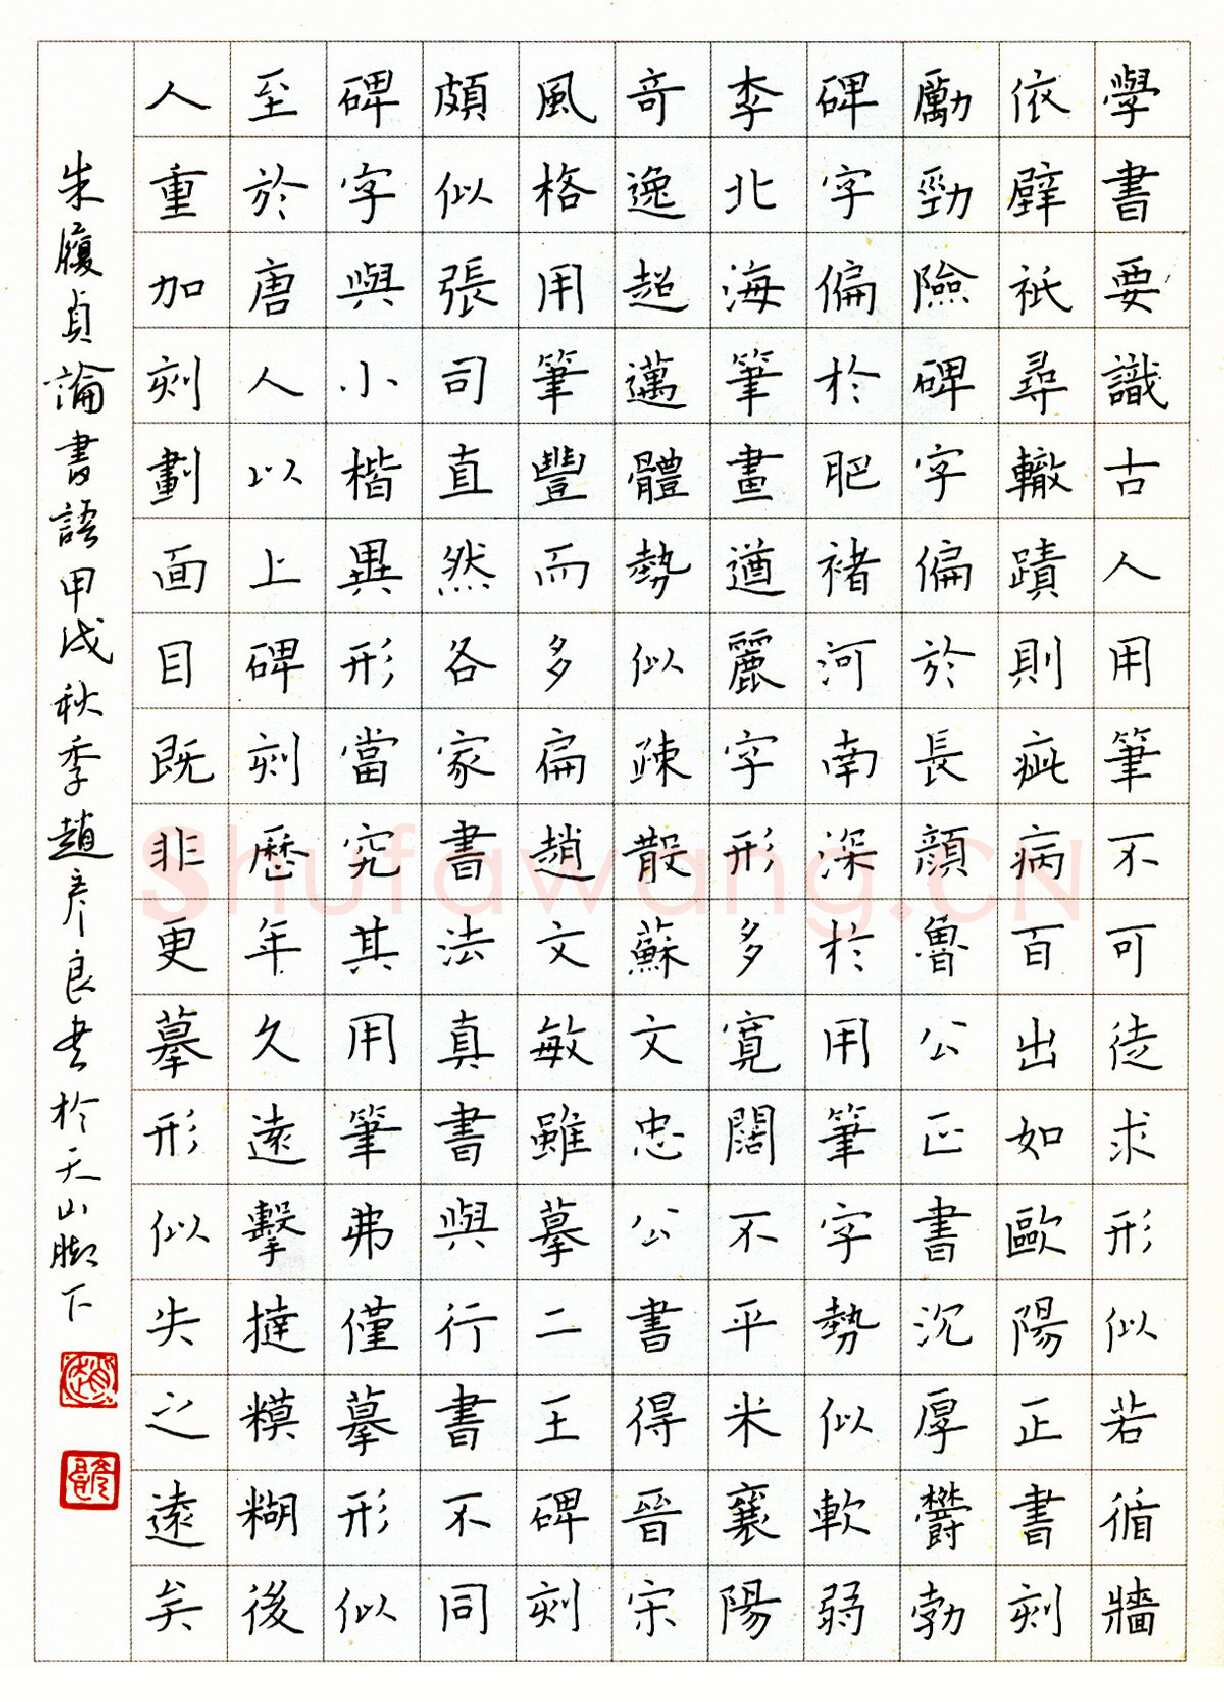 學書要識古人用筆不可徒求形似若循牆
依壁衹尋轍蹟則疵病百出如歐陽正書刻
勵勁險碑字偏於長顔魯公正書沉厚鬱勃
碑字偏於肥褚河南深於用筆字勢似軟弱
李北海筆畫遒麗字形多寬闊不平米襄陽
奇逸超邁體勢似疎散蘇文忠公書得晉宋
風格用筆豐而多扁趙文敏雖摹二王碑刻
頗似張司直然各家書法真書與行書不同
碑字與小楷異形當究其用筆弗僅摹形似
至於唐人以上碑刻歷年久遠擊撻糢糊後
人重加刻劃面目既非更摹形似失之遠矣
朱履貞論書語甲戌秋季趙彥良書於天山脚下
Shufawang.CN